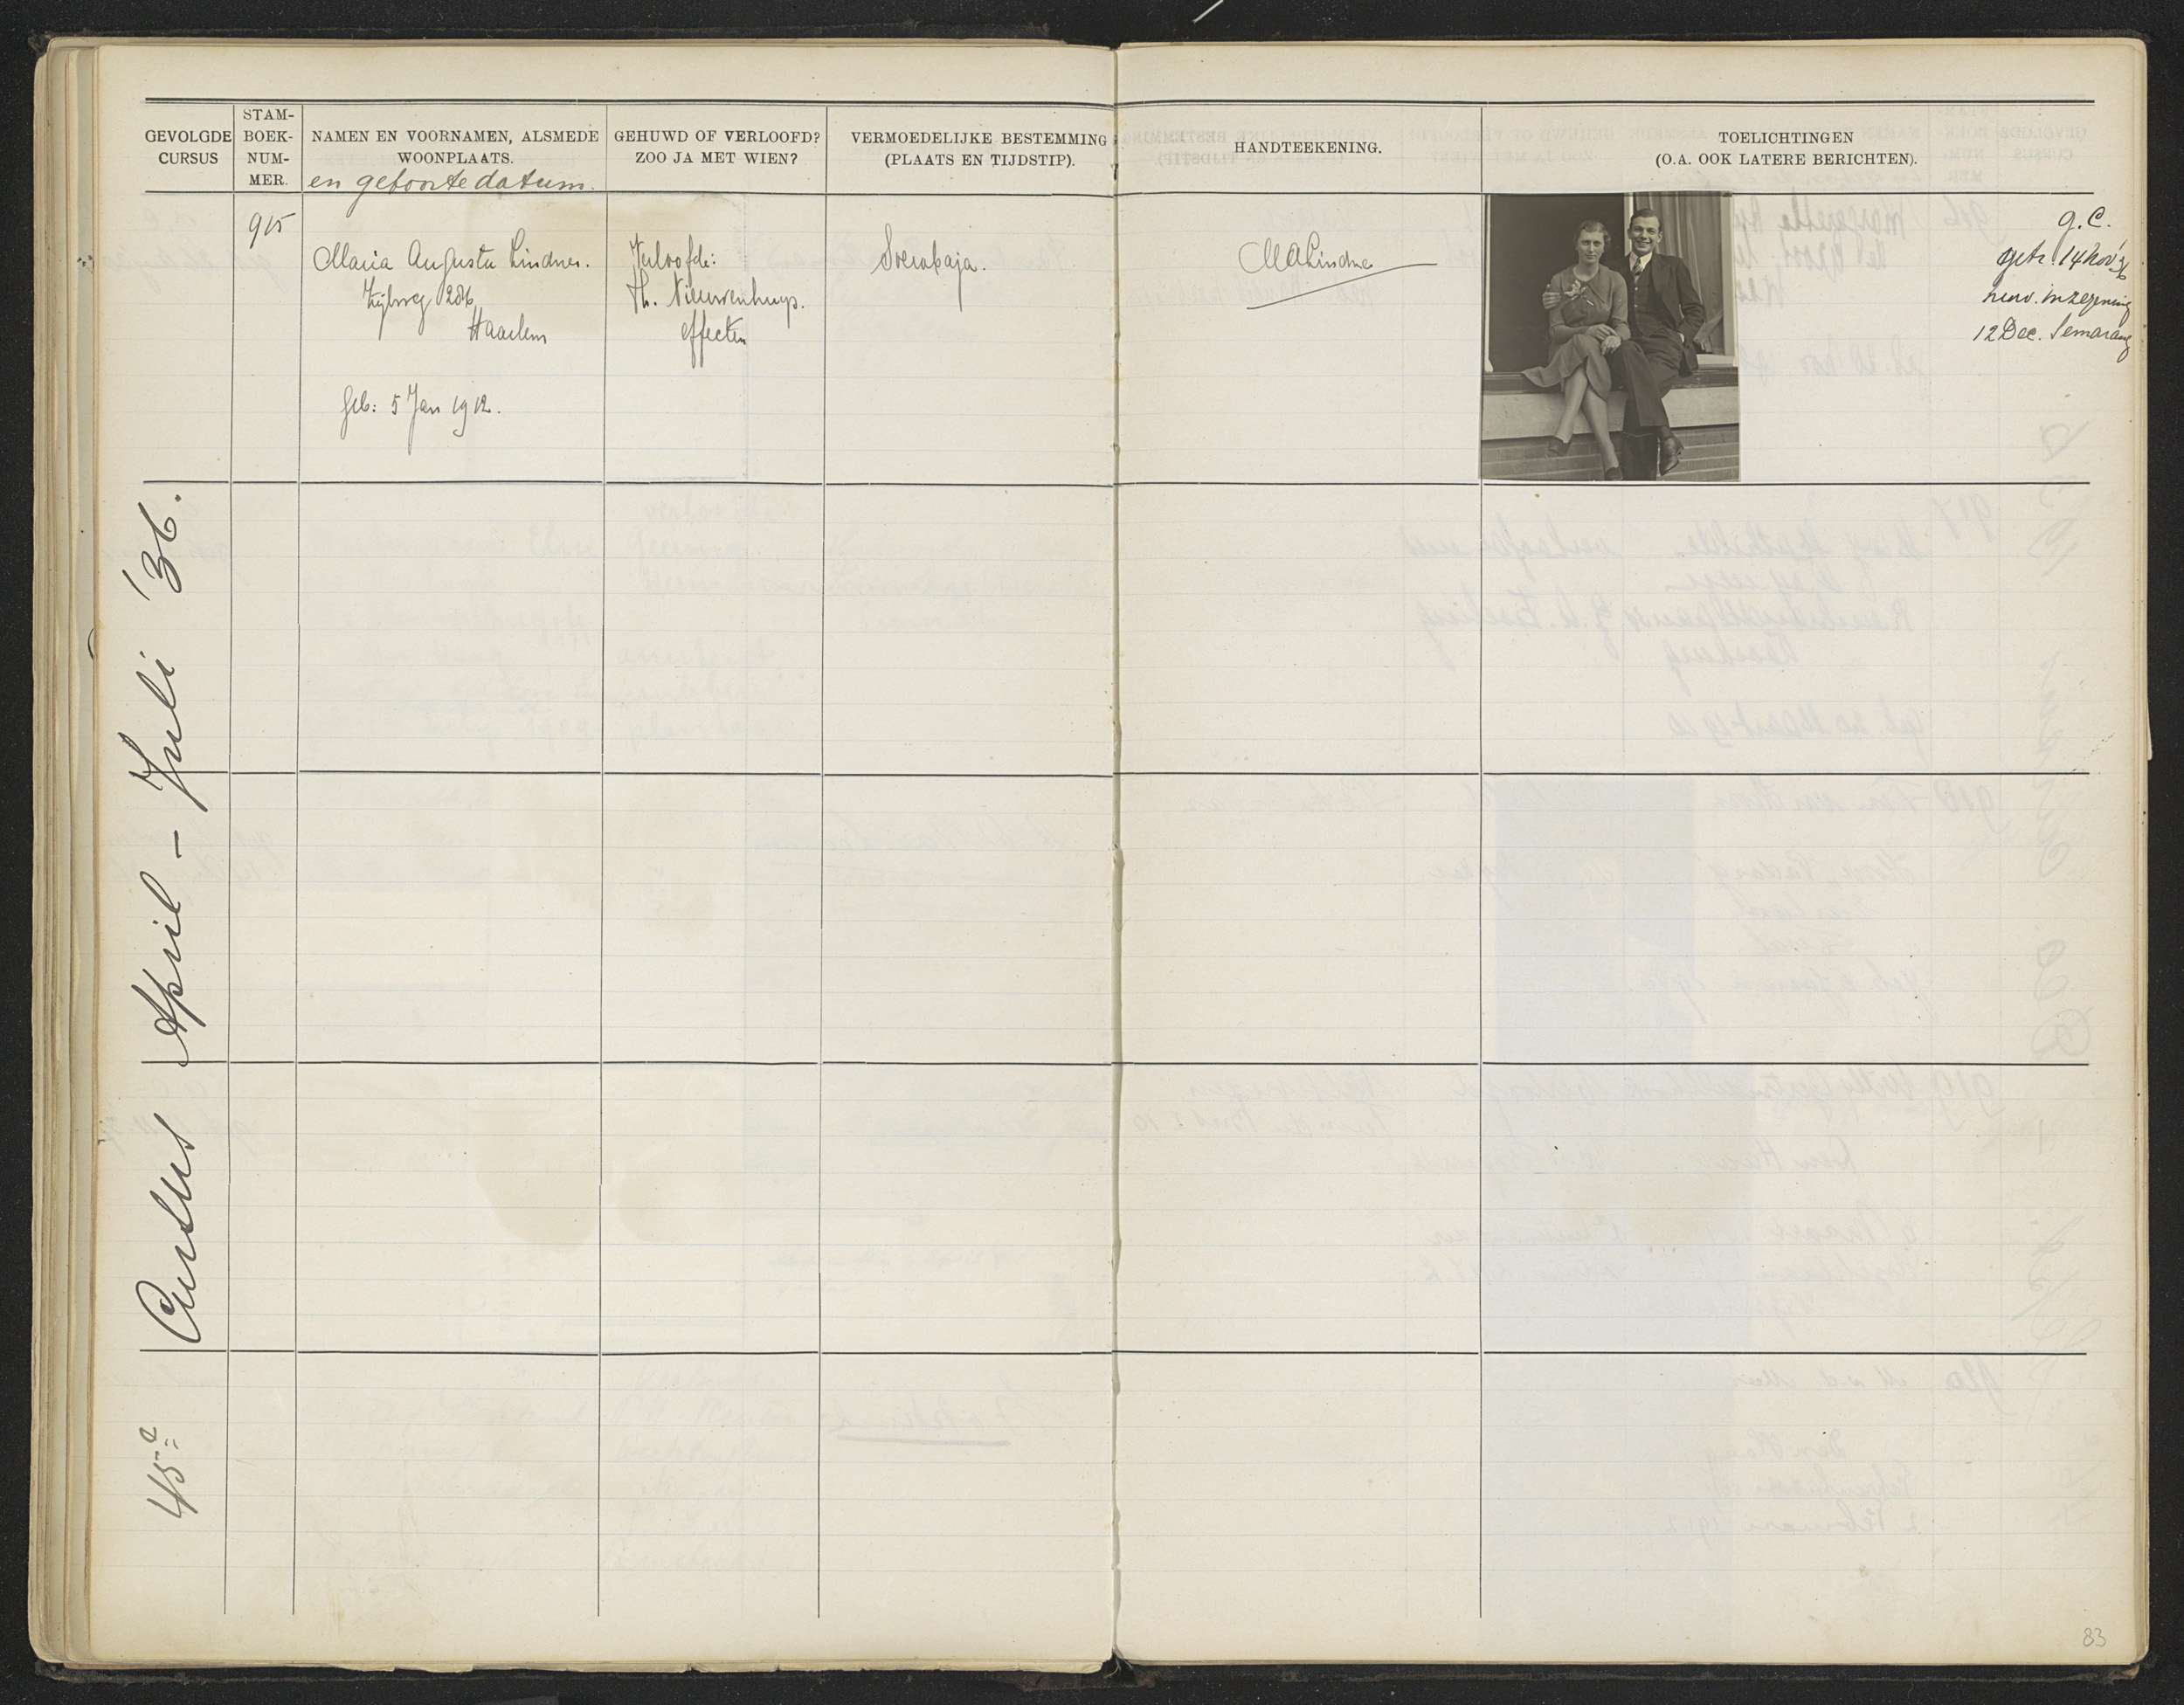 GEVOLGDE
CURSUS
STAM-
BOEK-
NUM-
MER.
NAMEN EN VOORNAMEN, ALSMEDE
WOONPLAATS.
en geboortedatum.
GEHUWD OF VERLOOFD?
ZOO JA MET WIEN?
VERMOEDELIJKE BESTEMMING
(PLAATS EN TIJDSTIP).
HANDTEEKENING.
TOELICHTINGEN
(O.A. OOK LATERE BERICHTEN).
45e Cursus April - Juli '36.
915
Maria Augusta Lindner.
Zijlweg
Haarlem
Geb: 5 Jan 1912.
Verloofd:
Th. Nieuwenhuys.
effecten
Soerabaja.
MALindner
g.C.
getr. 14 Nov '36
kerk. inzegening
12 Dec. Semarang
83